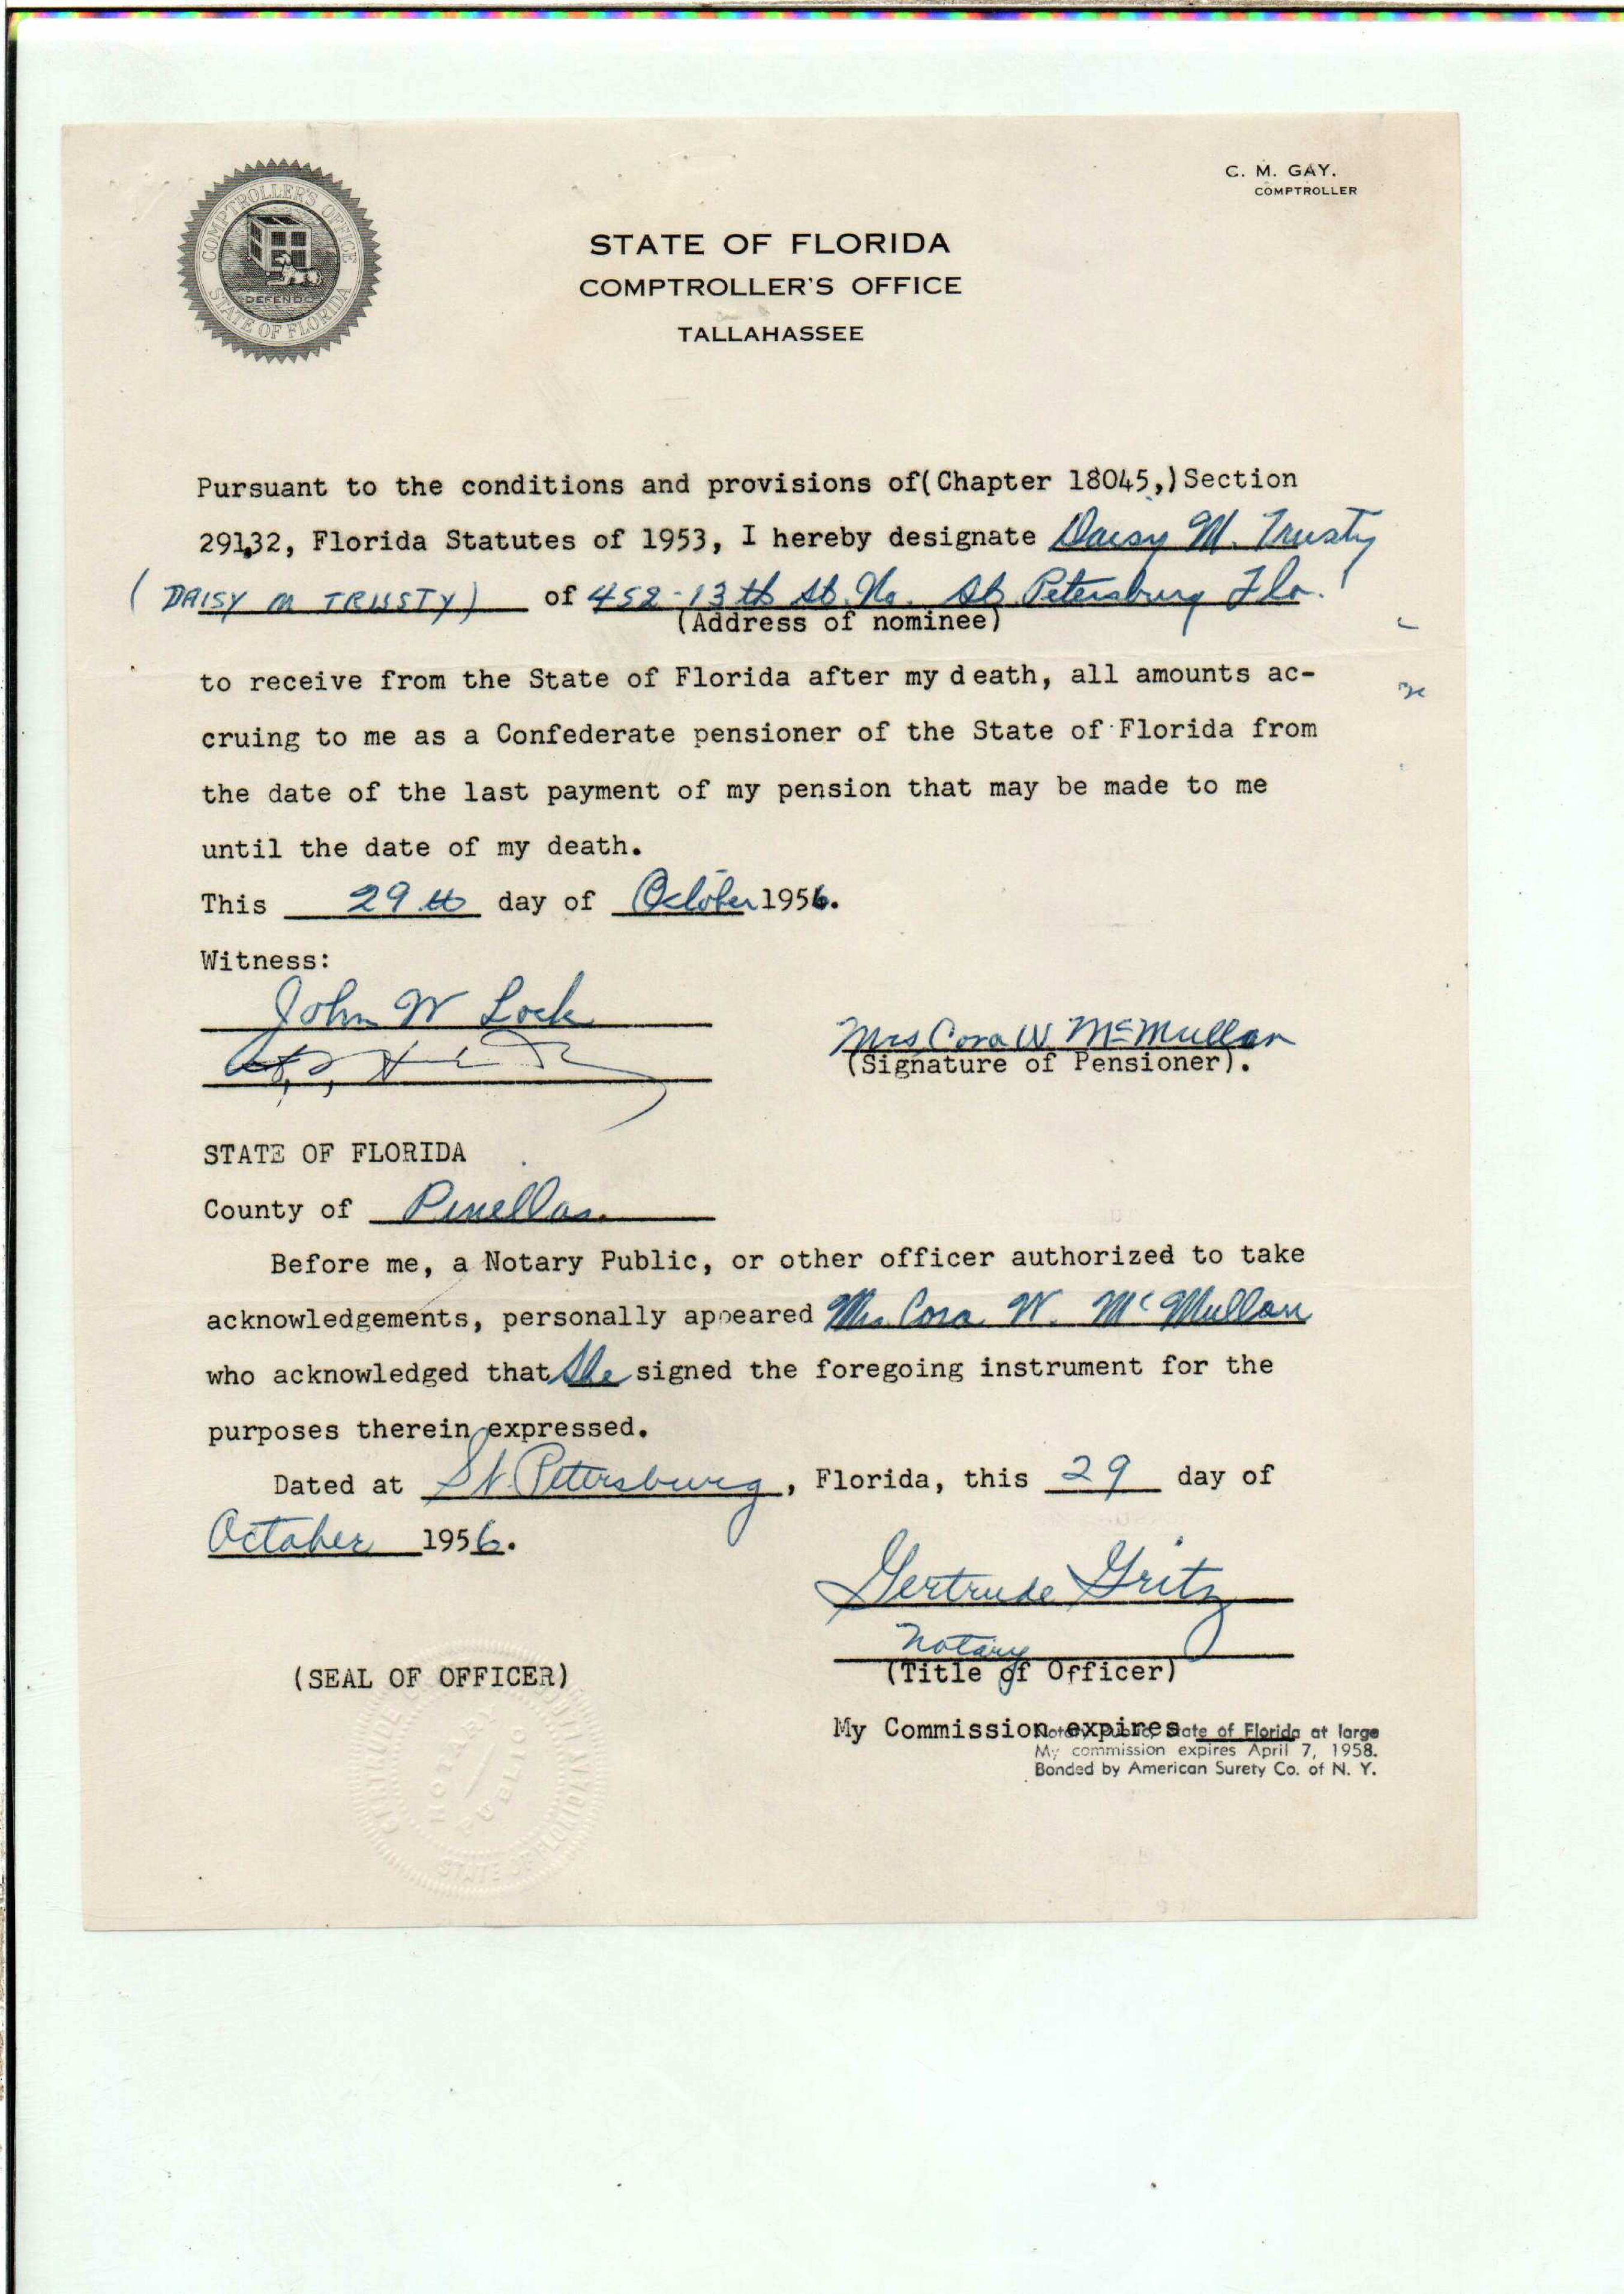 C. M. GAY.
COMPTROLLER
COMPTROLLER'S OFFICE
DEFENDO
STATE OF FLORIDA
STATE OF FLORIDA
COMPTROLLER'S OFFICE
TALLAHASSEE
Pursuant to the conditions and provisions of(Chapter 18045,)Section
291,32, Florida Statutes of 1953, I hereby designate Daisy M. Trusty
(DAISY M TRUSTY) of 452-13th St. No. St Petersburg Fla.
(Address of nominee)
to receive from the State of Florida after my death, all amounts ac-
cruing to me as a Confederate pensioner of the State of Florida from
the date of the last payment of my pension that may be made to me
until the date of my death.
This 29th day of October 1956.
Witness:
John W Lock
Mrs Cora W McMullan
(Signature of Pensioner).
STATE OF FLORIDA
County of Pinellas.
Before me, a Notary Public, or other officer authorized to take
acknowledgements, personally appeared Mrs Cora W. McMullan
who acknowledged that she signed the foregoing instrument for the
purposes therein expressed.
Dated at St. Petersburg, Florida, this 29 day of
October 1956.
Gertrude Gritz
Notary
(Title of Officer)
(SEAL OF OFFICER)
NOTARY
PUBLIC
My Commission expires
Notary Public, State of Florida at large
My commission expires April 7, 1958.
Bonded by American Surety Co. of N. Y.